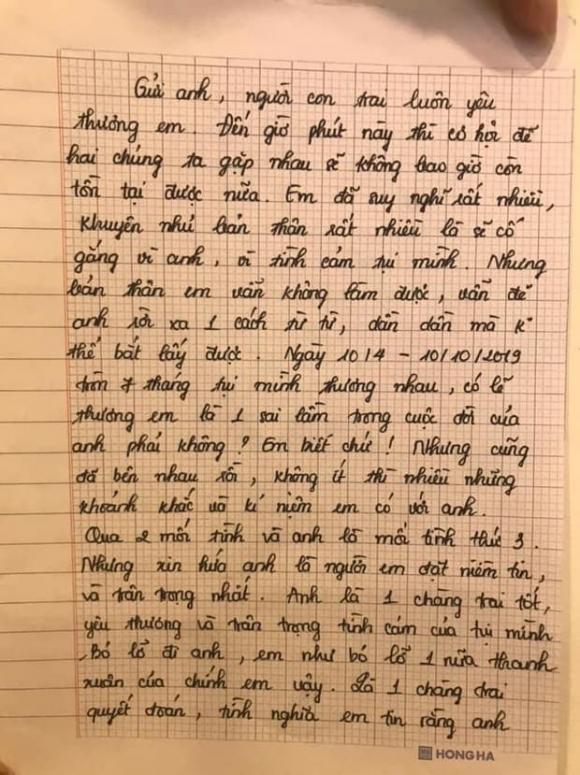 Gửi anh, người con trai luôn yêu
thương em. Đến giờ phút này thì cơ hội để
hai chúng ta gặp nhau sẽ không bao giờ còn
tồn tại được nữa. Em đã suy nghĩ rất nhiều,
Khuyên nhủ bản thân rất nhiều là sẽ cố
gắng vì anh, vì tình cảm tụi mình. Nhưng
bản thân em vẫn không làm được, vẫn để
anh rời xa 1 cách từ từ, dần dần mà k
thể bắt lấy được. Ngày 10/4 - 10/10/2019
tròn 7 tháng tụi mình thương nhau, có lẽ
thương em là 1 sai lầm trong cuộc đời của
anh phải không? Em biết chứ! Nhưng cũng
đã bên nhau rồi, không ít thì nhiều những
khoảnh khắc và kỉ niệm em có với anh.
Qua 2 mối tình và anh là mối tình thứ 3.
Nhưng xin hứa anh là người em đặt niềm tin,
và trân trọng nhất. Anh là 1 chàng trai tốt,
yêu thương và trân trọng tình cảm của tụi mình
Bỏ lỡ đi anh, em như bỏ lỡ 1 nửa thanh
xuân của chính em vậy. Là 1 chàng trai
quyết đoán, tình nghĩa em tin rằng anh
HONG HA